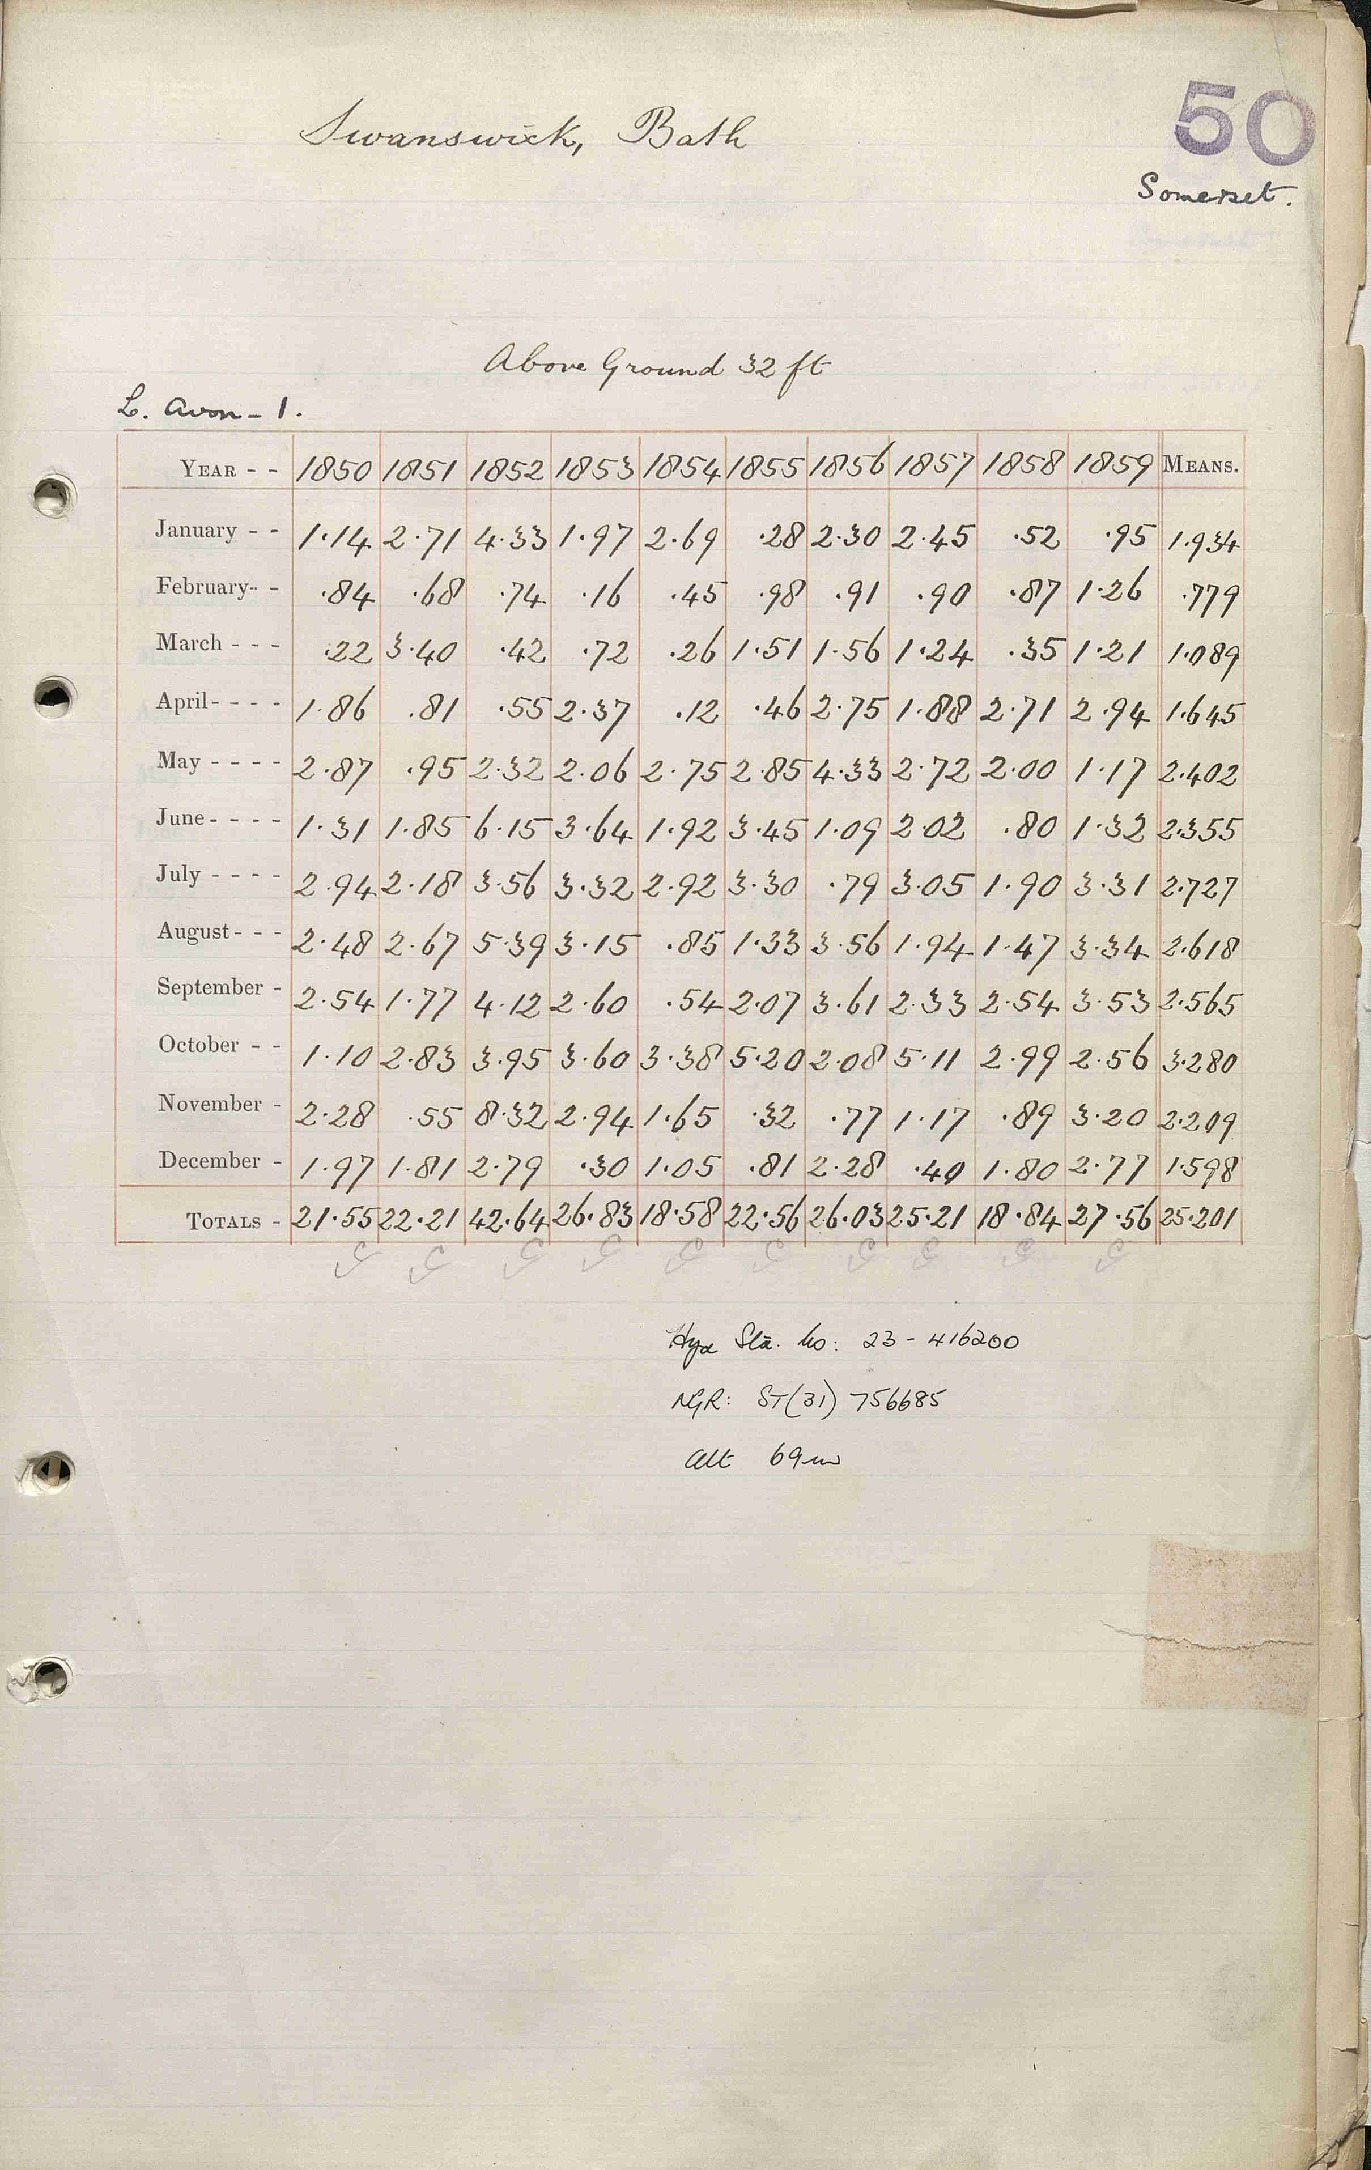 50
Swanswick, Bath
Somerset.
Above Ground 32 ft
L. Avon - 1.
YEAR - - 1850 1851 1852 1853 1854 1855 1856 1857 1858 1859 MEANS.
January - - 1.14 2.71 4.33 1.97 2.69 .28 2.30 2.45 .52 .95 1.934
February - - .84 .68 .74 .16 .45 .98 .91 .90 .87 1.26 .779
March - - - .22 3.40 .42 .72 .26 1.51 1.56 1.24 .35 1.21 1.089
April - - - - 1.86 .81 .55 2.37 .12 .46 2.75 1.88 2.71 2.94 1.645
May - - - - 2.87 .95 2.32 2.06 2.75 2.85 4.33 2.72 2.00 1.17 2.402
June - - - - 1.31 1.85 6.15 3.64 1.92 3.45 1.09 2.02 .80 1.32 2.355
July - - - - 2.94 2.18 3.56 3.32 2.92 3.30 .79 3.05 1.90 3.31 2.727
August - - - 2.48 2.67 5.39 3.15 .85 1.33 3.56 1.94 1.47 3.34 2.618
September - 2.54 1.77 4.12 2.60 .54 2.07 3.61 2.33 2.54 3.53 2.565
October - - 1.10 2.83 3.95 3.60 3.38 5.20 2.08 5.11 2.99 2.56 3.280
November - 2.28 .55 8.32 2.94 1.65 .32 .77 1.17 .89 3.20 2.209
December - 1.97 1.81 2.79 .30 1.05 .81 2.28 .40 1.80 2.77 1.598
TOTALS - 21.55 22.21 42.64 26.83 18.58 22.56 26.03 25.21 18.84 27.56 25.201
Sta. No: 23 - 416200
NGR: ST(31) 756685
Alt 69m